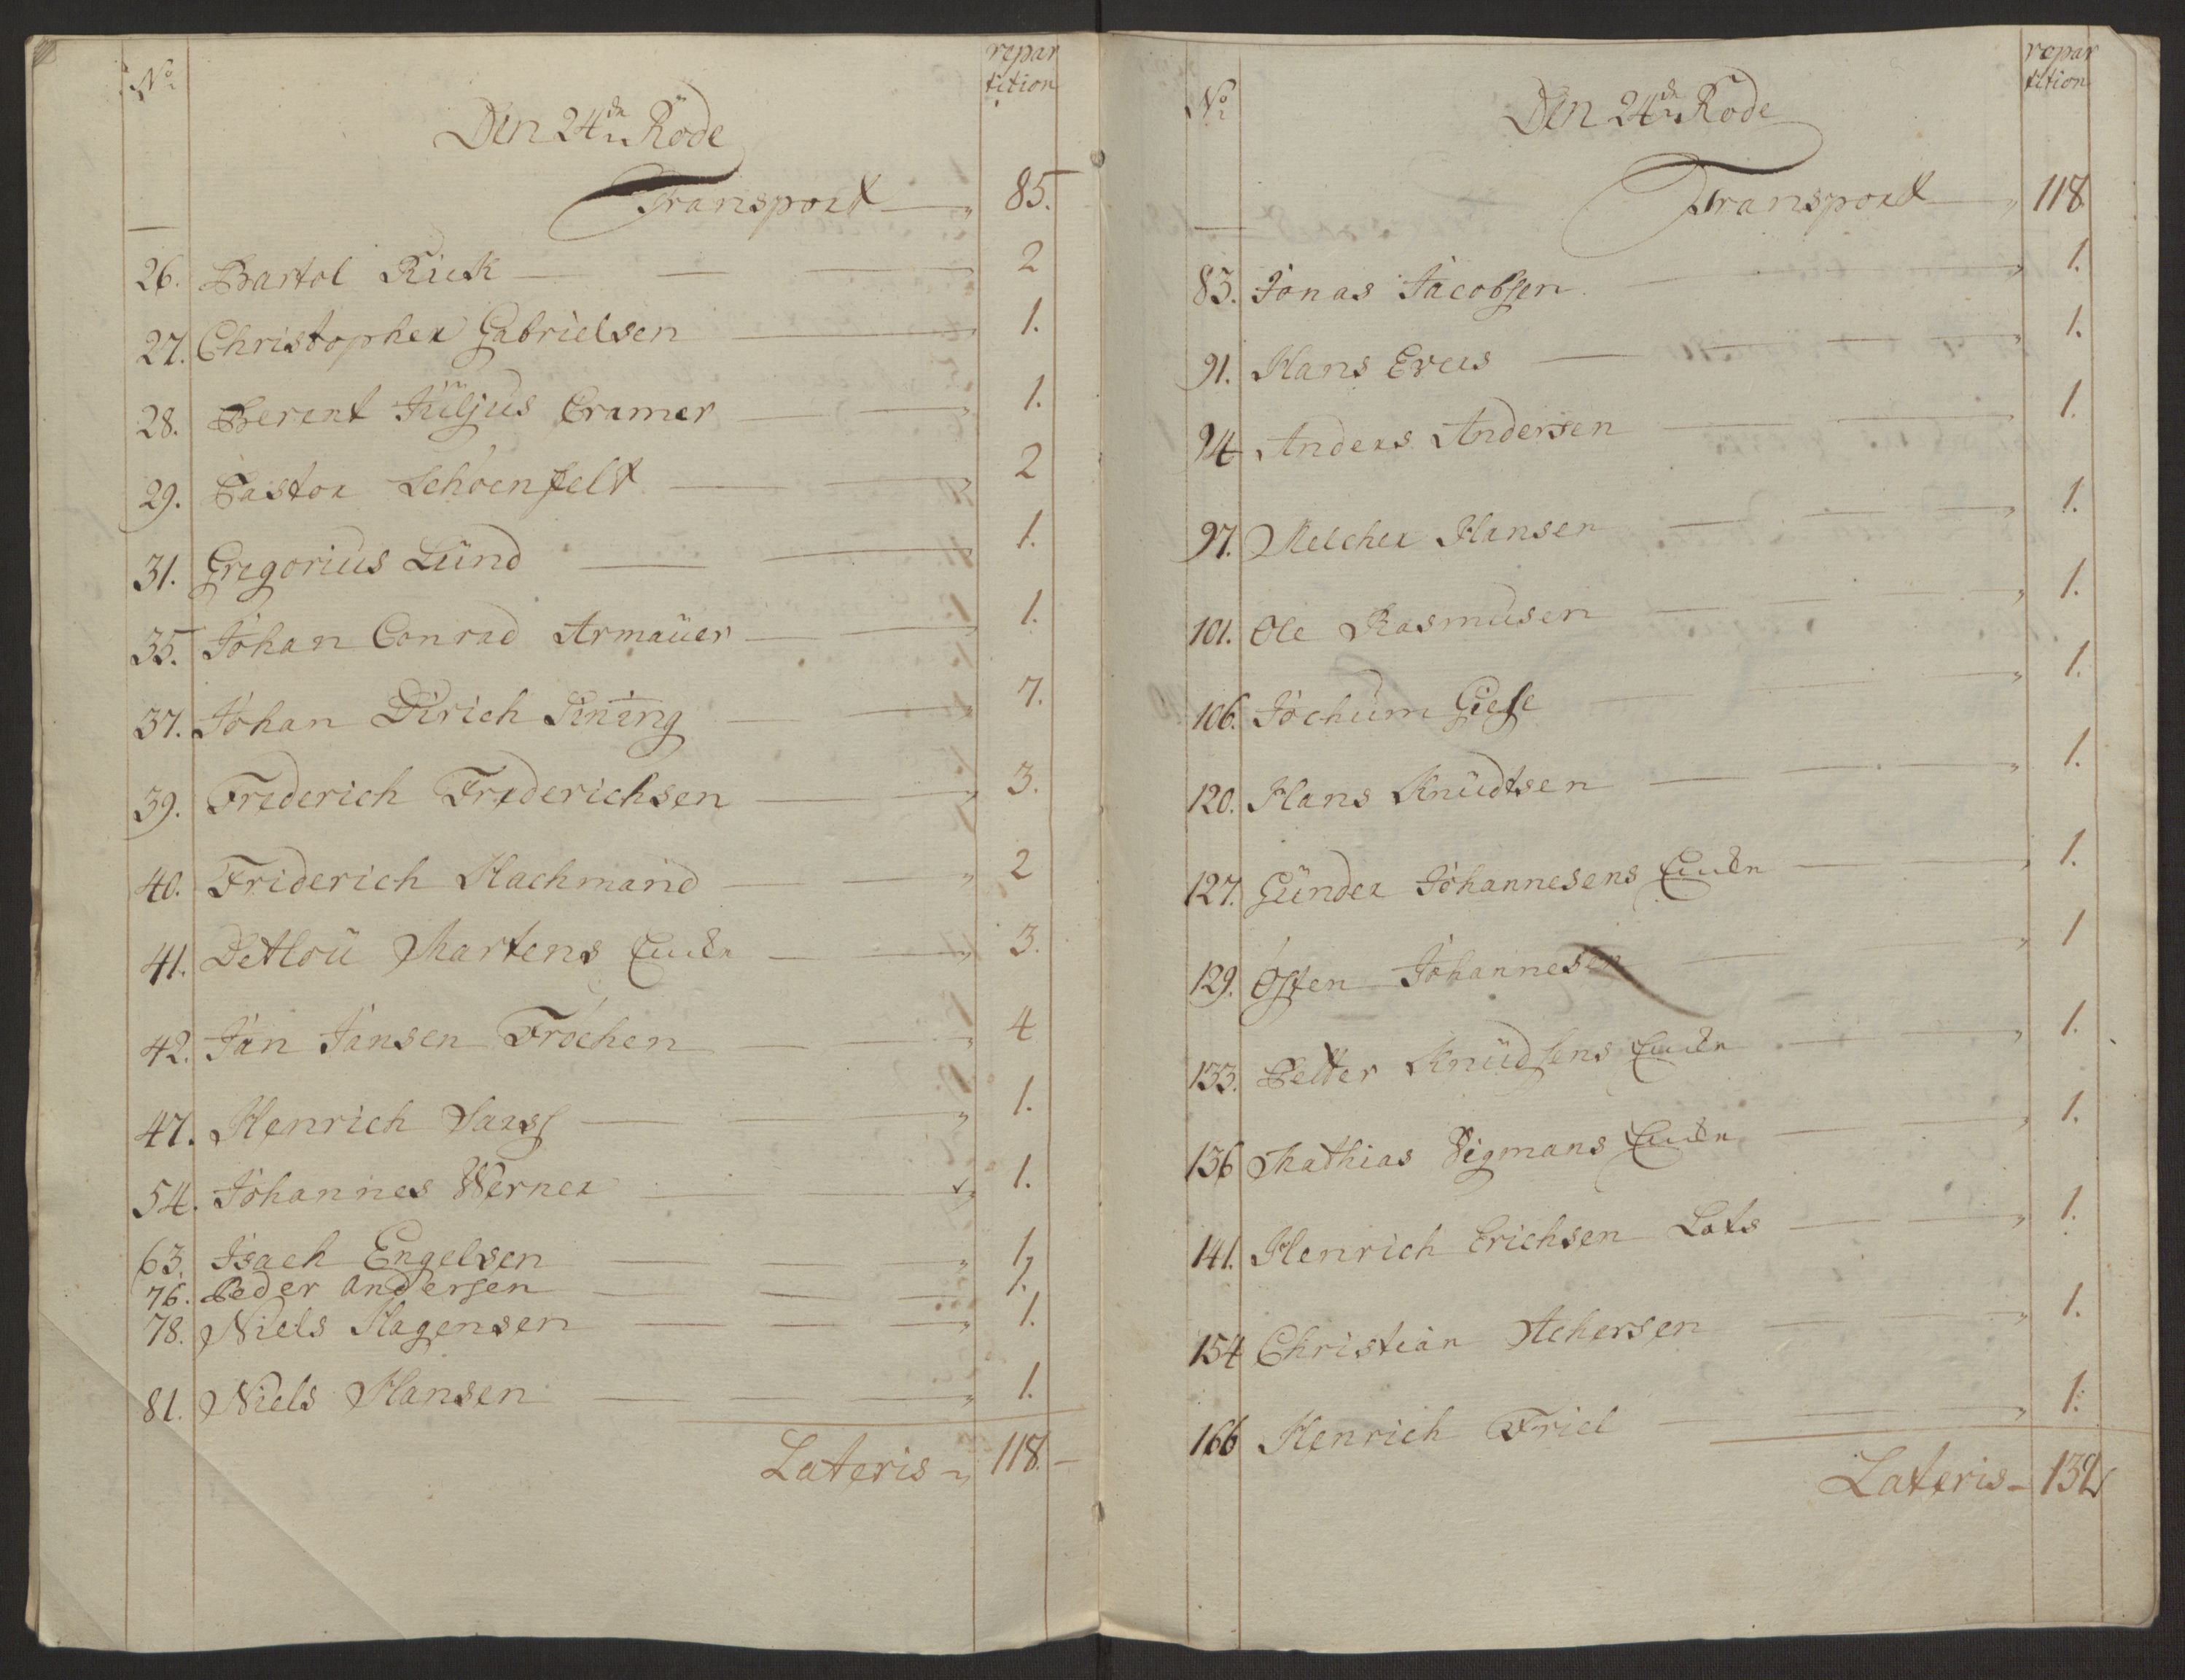 No
repar
tition
Den 24de Rode
Transport 85.
26. Bartol Rick 2
27. Christopher Gabrielsen 1.
28. Berent Juljus Cramer 1.
29. Pastor Schoenfelt 2
31. Gregorius Lund 1.
35. Johan Conrad Armauer 1.
37. Johan Dirich Sining 7.
39. Frederich Frederichsen 3.
40. Friderich Hachmand 2
41. Detlou Martens Encke 3.
42. Jan Jansen Frochen 4
47. Henrich Sarss 1.
54. Johannes Werner 1.
63. Isach Engelsen 1.
76. Peder Andersen 1.
78. Niels Hagensen 1.
81. Niels Hansen 1.
Lateris 118.
No
repar
tition
Den 24de Rode
Transport 118
83. Jonas Jacobsen 1.
91. Hans Evers 1.
94 Anders Andersen 1.
97. Melcher Hansen 1.
101. Ole Rasmusen 1.
106. Jochum Giese 1.
120. Hans Knudtsen 1.
127. Gunder Johannesens Encke 1.
129. Osten Johannesen 1
133. Petter Knudsens Encke 1.
136 Mathias Sigmans Encke 1.
141. Henrich Erichsen Lots 1.
154 Christian Achersen 1.
166 Henrich Friel 1.
Lateris 132